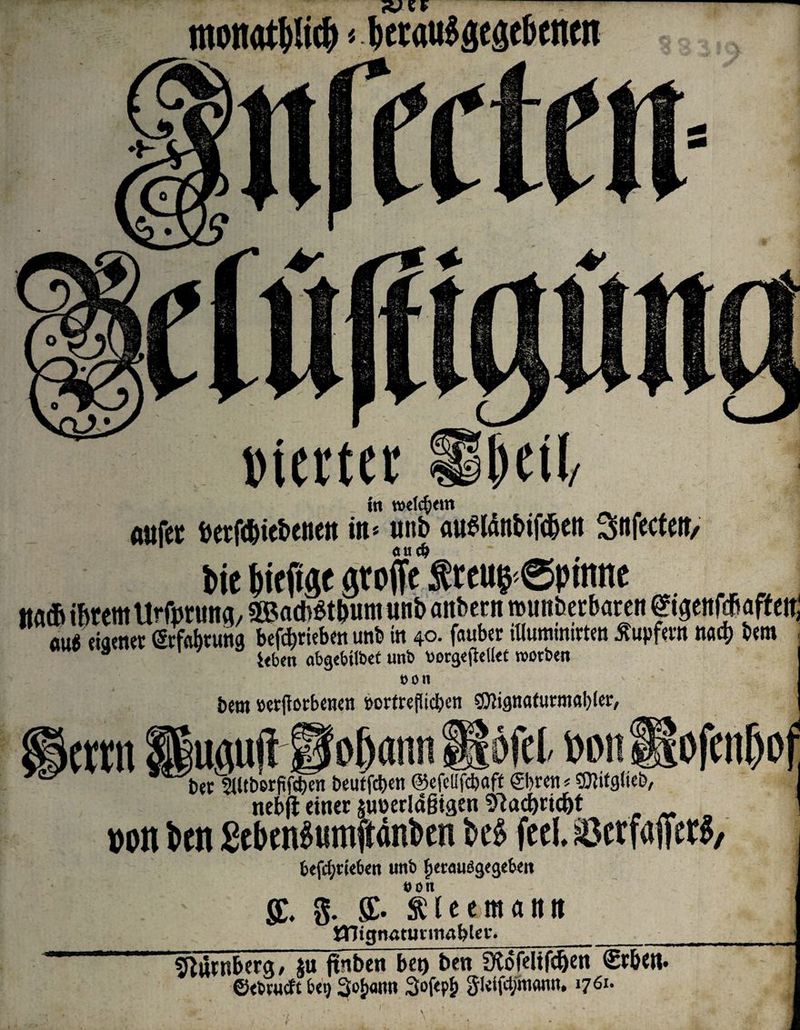 Der
monathlich-herausgegebenen
Insecten-
Belustigung
vierter Theil,
in welchem
auser verschiedenen in- und ausländischen Insecten,
auch
die hiesige grosse Kreutz-Spinne
nach ihrem Ursprung, Wachsthum und andern wunderbaren Eigenschaften,
aus eigener Erfahrung beschrieben und in 40. sauber illuminirten Kupfern nach dem
Leben abgebildet und vorgestellet worden
von
dem verstorbenen vortreflichen Mignaturmahler,
Herrn August Johann Rösel von Rosenhof
der Altdorfischen deutschen Gesellschaft Ehren-Mitglied,
nebst einer zuverläßigen Nachricht
von den Lebensumständen des seel. Verfassers,
beschrieben und herausgegeben
von
C. F. C. Kleemann
Mignaturmahler.
Nürnberg, zu finden bey den Röselischen Erben.
Gedruckt bey Johann Joseph Fleischmann. 1761.